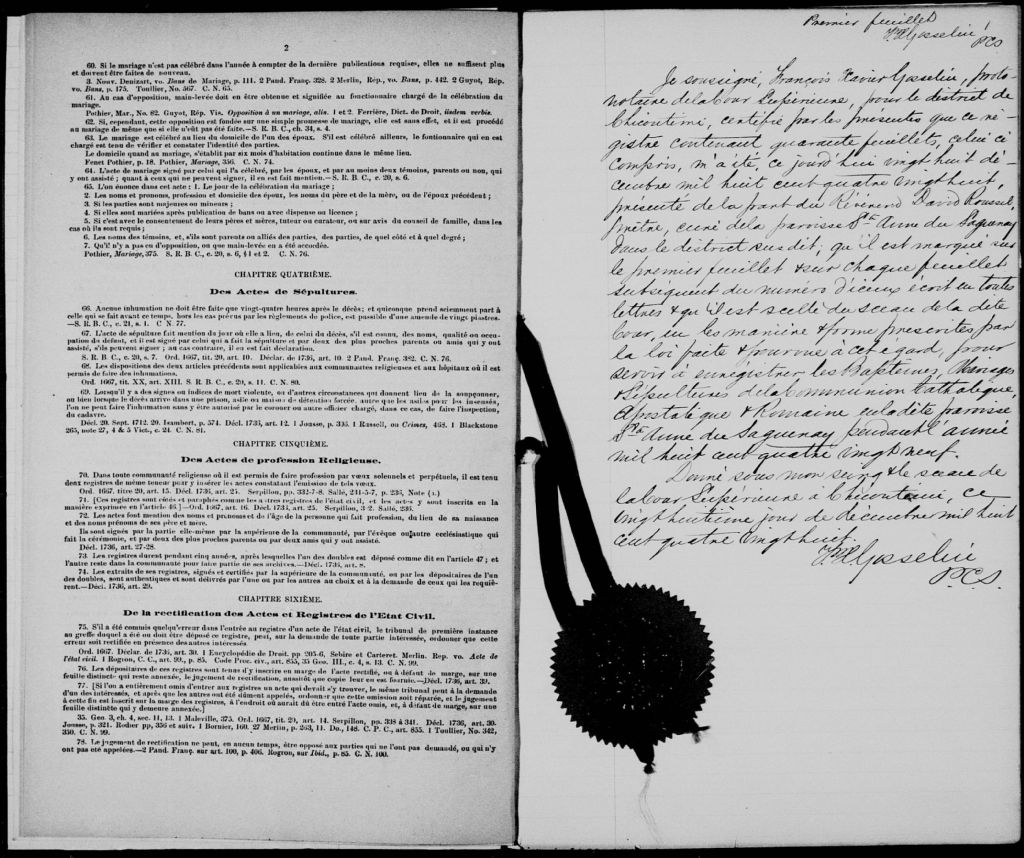 2
60. Si le mariage n'est pas célébré dans l'année à compter de la dernière publications requise, elles ne suffisent plus
et doivent être faites de nouveau.
3. Nouv. Denizart, vo. Bans de Mariage, p. 111. 2 Pand. Franç. 328. 2 Merlin, Rép., vo. Bans, p. 442. 2 Guyot, Rép.
vo. Bans, p. 175. Toullier, No. 567. C. N. 65.
61. Au cas d'opposition, main-levée doit en être obtenue et signifiée au fonctionnaire chargé de la célébration du
mariage.
Pothier, Mar., No. 82. Guyot, Rép. Vis. Opposition à un mariage, alin. 1 et 2. Ferrière, Dict. de Droit, iisdem verbis.
62. Si, cependant, cette opposition est fondée sur une simple promesse de mariage, elle est sans effet, et il est procédé
au mariage de même que si elle n'eût pas été faite.—S. R. B. C., ch. 34, s. 4.
63. Le mariage est célébré au lieu du domicile de l'un des époux. S'il est célébré ailleurs, le fontionnaire qui en est
chargé est tenu de vérifier et constater l'identité des parties.
Le domicile quand au mariage, s'établit par six mois d'habitation continue dans le même lieu.
Fenet Pothier, p. 18. Pothier, Mariage, 356. C. N. 74.
64. L'acte de mariage signé par celui qui l'a célébré, par les époux, et par au moins deux témoins, parents ou non, qui
y ont assisté ; quant à ceux qui ne peuvent signer, il en est fait mention.—S. R. B. C., c. 20, s. 6.
65. L'on énonce dans cet acte : 1. Le jour de la célébration du mariage ;
2. Les noms et pronoms, profession et domicile des époux, les noms du père et de la mère, ou de l'époux précédent ;
3. Si les parties sont majeures ou mineurs ;
4. Si elles sont mariées après publication de bans ou avec dispense ou licence ;
5. Si c'est avec le consentement de leurs pères et mères, tuteur ou curateur, ou sur avis du conseil de famille, dans les
cas où ils sont requis ;
6. Les noms des témoins, et, s'ils sont parents ou alliés des parties, des parties, de quel côté et à quel degré ;
7. Qu'il n'y a pas eu d'opposition, ou que main-levée en a été accordée.
Pothier, Mariage, 375. S. R. B. C., c. 20, s. 6, § 1 et 2. C. N. 76.
CHAPITRE QUATRIÈME.
Des Actes de Sépultures.
66. Aucune inhumation ne doit être faite que vingt-quatre heures après le décès; et quiconque prend sciemment part à
celle qui se fait avant ce temps, hors les cas prévus par les règlements de police, est passible d'une amende de vingt piastres.
—S. R. B. C., c. 21, s. 1. C N. 77.
67. L'acte de sépulture fait mention du jour où elle a lieu, de celui du décès, s'il est connu, des noms, qualité ou occu-
pation du défunt, et il est signé par celui qui a fait la sépulture et par deux des plus proches parents ou amis qui y ont
assisté, s'ils peuvent signer ; au cas contraire, il en est fait déclaration.
S. R. B. C., c. 20, s. 7. Ord. 1667, tit. 20, art. 10. Déclar. de 1736, art. 10. 2 Pand. Franç. 382. C. N. 76.
68. Les dispositions des deux articles précédents sont applicables aux communautés religieuses et aux hôpitaux où il est
permis de faire des inhumations.
Ord. 1667, tit. XX, art. XIII. S. R. B. C., c. 20, s. 11. C. N. 80.
69. Lorsqu'il y a des signes ou indices de mort violente, ou d'autres circonstances qui donnent lieu de la soupçonner,
ou bien lorsque le décès arrive dans une prison, asile ou maison de détention forcée, autre que les asiles pour les insensés,
l'on ne peut faire l'inhumation sans y être autorisé par le coroner ou autre officier chargé, dans ce cas, de faire l'inspection,
du cadavre.
Décl. 20. Sept. 1712. 20. Isambert, p. 574. Décl. 1736, art. 12. 1 Jousse, p. 336. 1 Russell, ou Crimes, 468. 1 Blackstone
265, note 27, 4 & 5 Vict., c. 24. C. N. 81.
CHAPITRE CINQUIÈME.
Des Actes de profession Religieuse.
70. Dans toute communauté religieuse où il est permis de faire profession par vœux solennels et perpétuels, il est tenu
deux registres de même teneur pour y insérer les actes constatant l'émission de tels vœux.
Ord. 1667, titre 20, art. 15. Décl. 1736, art. 27. Serpillon, pp. 332-7-8. Sallé, 241-5-7, p. 236, Note (1.)
71. [Ces registres sont cotés et paraphés comme les autres registres de l'état civil, et les actes y sont inscrits en la
manière exprimée en l'article 46.]—Ord. 1667, art. 16. Décl. 1736, art. 25. Serpillon, 3-2. Sallé, 236.
72. Les actes font mention des noms et pronoms et de l'âge de la personne qui fait profession, du lieu de sa naissance
et des noms prénoms de ses père et mère.
Ils sont signés par la partie elle-même par la supérieure de la communauté, par l'évèque ou autre ecclésiastique qui
fait la cérémonie, et par deux des plus proches parents ou par deux amis qui y ont assisté.
Décl. 1736, art. 27-28.
73. Les registres durent pendant cinq années, après lesquelles l'un des doubles est déposé comme dit en l'article 47 ; et
l'autre reste dans la communauté pour faire partie de ses archives.—Décl. 1736, art. 8.
74. Les extraits de ses registres, signés et certifiés par la supérieure de la communauté, ou par les dépositaires de l'un
des doubles, sont authentiques et sont délivrés par l'une ou par les autres au choix et à la demande de ceux qui les requiè-
rent.—Décl. 1736, art. 29.
CHAPITRE SIXIÈME.
De la rectification des Actes et Registres de l'Etat Civil.
75. S'il a été commis quelqu'erreur dans l'entrée au registre d'un acte de l'état civil, le tribunal de première instance
au greffe duquel a été ou doit être déposé ce registre, peut, sur la demande de toute partie intéressée, ordonner que cette
erreur soit rectifiée en présence des autres intéressés
Ord. 1667. Déclar. de 1736, art. 30. 1 Encyclopédie de Droit. pp 205-6, Sebire et Carteret. Merlin. Rep. vo. Acte de
l'état civil. 1 Rogron, C. C., art. 99., p. 85. Code Proc. civ., art. 855, 35 Geo. III., c. 4, s. 13. C. N. 99.
76. Les dépositaires de ces registres sont tenus d'y inscrire en marge de l'acte rectifié, ou à défaut de marge, sur une
feuille distincte qui reste annexée, le jugement de rectification, aussitôt que copie leur en est fournie.—Décl. 1736, art. 39.
77. [Si l'on a entièrement omis d'entrer aux registres un acte qui devait s'y trouver, le même tribunal peut à la demande
d'un des intéressés, et après que les autres ont été dûment appelés, ordonner que cette omission soit réparée, et le jugement
à cette fin est inscrit sur la marge des registres, à l'endroit où aurait du être entré l'acte omis, et, à défaut de marge, sur une
feuille distincte qui y demeure annexée.]
35. Geo. 3, ch. 4, sec. 11, 13. 1 Maleville, 375. Ord. 1667, tit. 20, art. 14. Serpillon, pp. 338 à 341. Décl. 1736, art. 30.
Jousse, p. 321. Rodier pp, 356 et suiv. 1 Bornier, 160. 27 Merlin, p. 263, 11. Do., 148. C. P. C., art. 855. 1 Toullier, No. 342,
350. C. N. 99.
78. Le jugement de rectification ne peut, en aucun temps, être opposé aux parties qui ne l'ont pas demandé, ou qui n'y
ont pas été appelées.—2 Pand. Franç. sur art. 100, p. 406. Rogron, sur Ibid., p. 85. C. N. 100.
Premier feuillet
F. X. Gosselin
P.C.S
Je soussigné, François Xavier Gosselin, proto-
notaire de la Cour Supérieure, pour le district de
Chicoutimi, certifie par les présentes que ce re-
gistre contenant quarante feuillets, celui ci
compris, m'a été, ce jourd'hui vingt huit dé-
cembre mil huit cent quatre vingt huit,
présenté de la part du Révérend David Roussel,
prêtre, curé de la paroisse Ste Anne du Saguenay
dans le district sus dit; qu'il est marqué sur
le premier feuillet & sur chaque feuillet
subséquent du numéro d'iceux écrit en toutes
lettres & qu'il est scellé du sceau de la dite
Cour, en la manière & forme prescrites par
la loi faite & pourvue à cet égard, pour
servir à enregistrer les Baptêmes, Mariages
& Sépultures de la Communion Catholique,
Apostolique & Romaine en la dite paroisse
Ste Anne du Saguenay pendant l'année
mil huit cent quatre vingt neuf.
Donné sous mon seing & le sceau de
la Cour Supérieure à Chicoutimi, ce
vingt huitième jour de décembre mil huit
cent quatre vingt huit.
F. X. Gosselin
P.C.S.